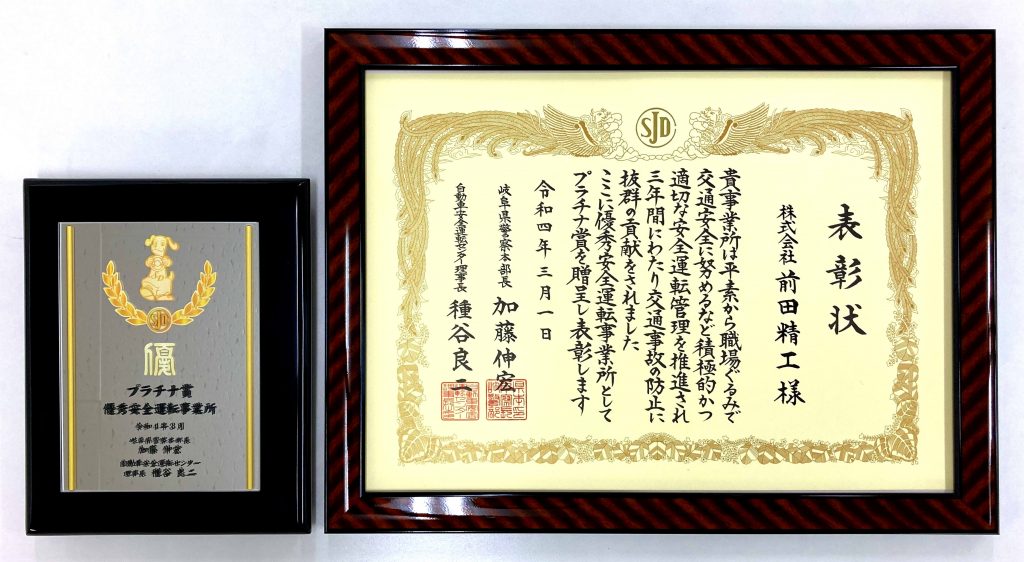 SJD
優
プラチナ賞
優秀安全運転事業所
令和4年3月
岐阜県警察本部長
加藤 伸宏
自動車安全運転センター
理事長 種谷良二
SJD
表彰状
株式会社 前田精工様
貴事業所は平素から職場ぐるみで
交通安全に努めるなど積極的かつ
適切な安全運転管理を推進され
三年間にわたり交通事故の防止に
抜群の貢献をされました
ここに優秀安全運転事業所として
プラチナ賞を贈呈し表彰します
令和四年三月一日
岐阜県警察本部長 加藤伸宏
自動車安全運転センター理事長 種谷良二